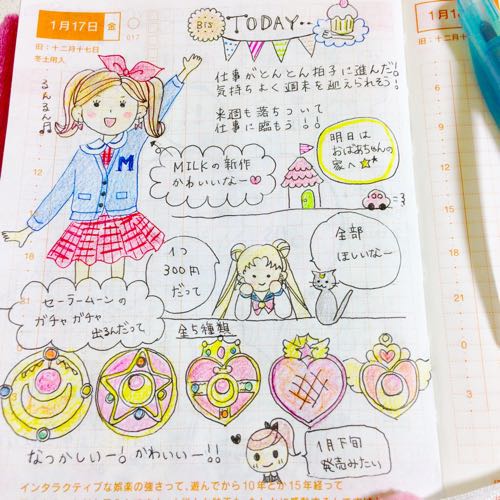 1月17日 金
017
旧:十二月十七日
冬土用入
Bis
TODAY..
仕事がとんとん拍子に進んだ!
気持ちよく週末を迎えられそう!
来週も落ちついて
仕事に臨もう!!
るんるん♫
M
MILKの新作
かわいいなー
明日は
おばあちゃんの
家へ☆
1つ
300円
だって
全部
ほしいなー
セーラームーンの
ガチャガチャ
出るんだって
全5種類
なつかしいー!かわいいー!!
1月下旬
発売みたい
インタラクティブな娯楽の強さって、遊んでから10年とか15年経って
1月1
旧:十二月